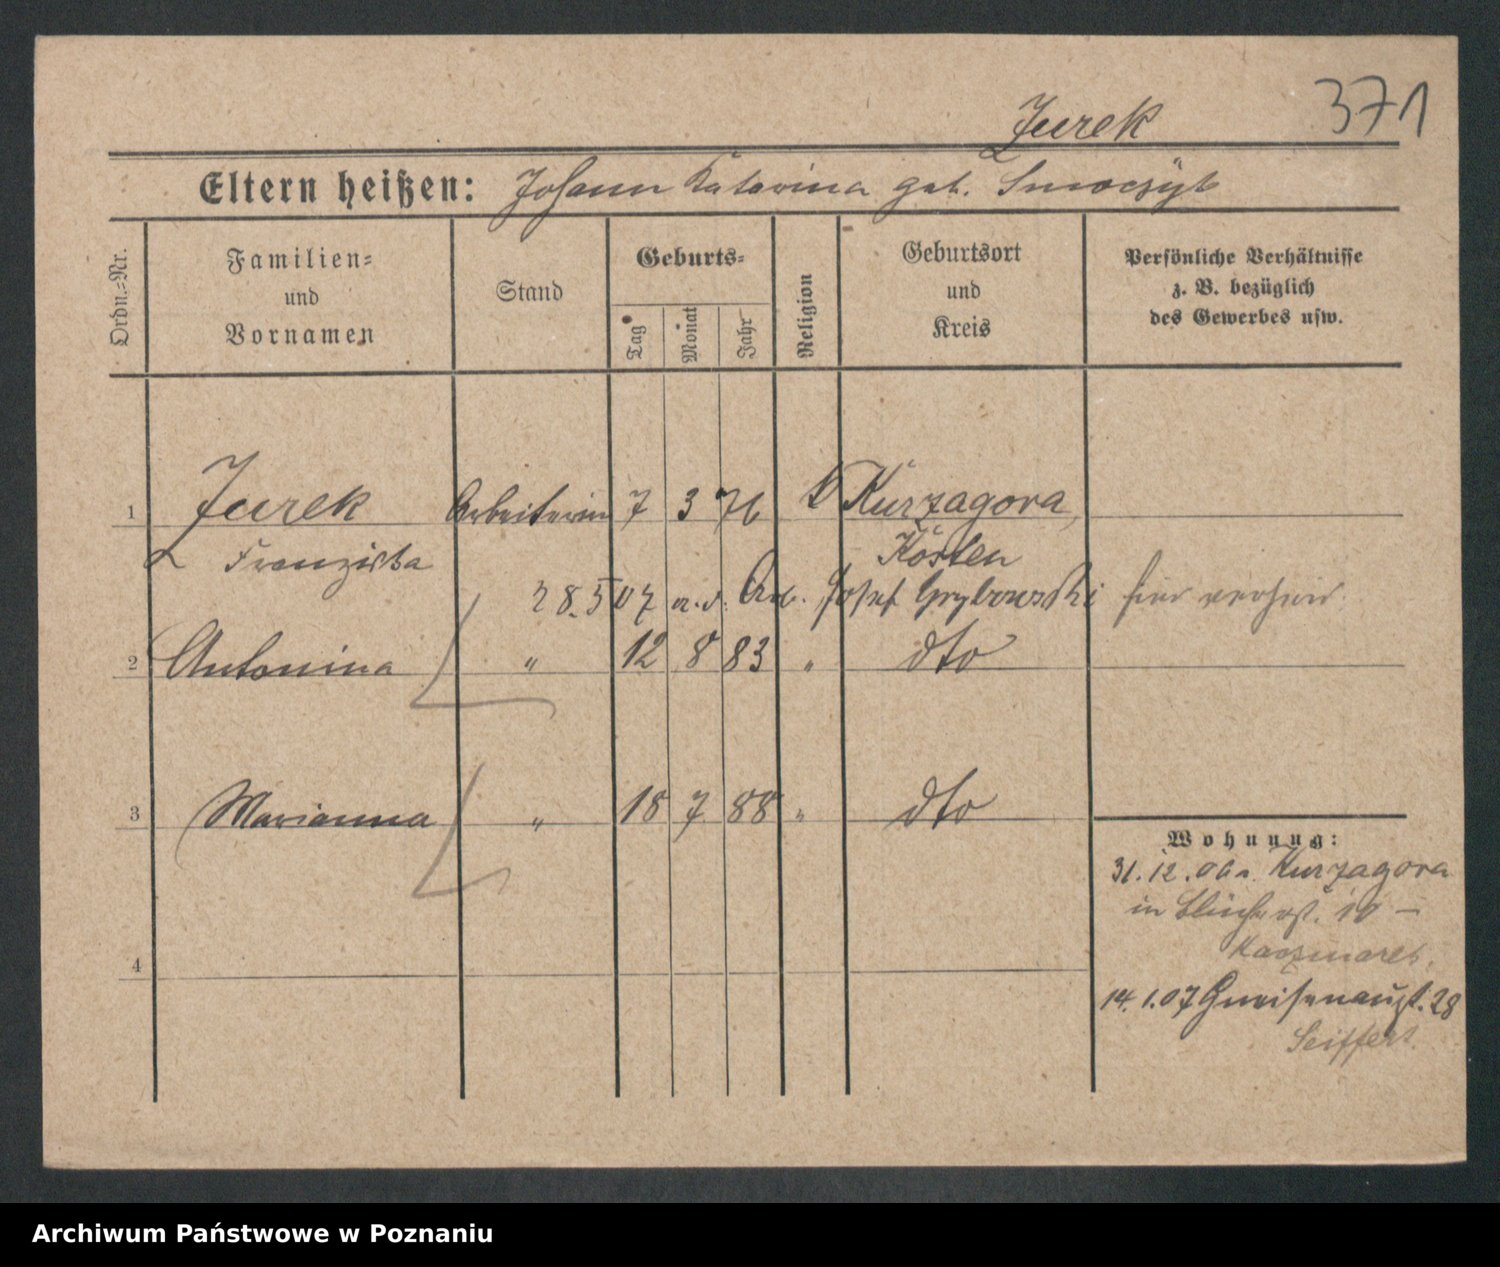 371
Jurek
Eltern heißen: Johann Katarina geb. Smoczyk
Ordn.=Nr.
Familien=
und
Vornamen
Stand
Geburts=
Tag
Monat
Jahr
Religion
Geburtsort
und
Kreis
Persönliche Verhältnisse
z. B. bezüglich
des Gewerbes usw.
1 Jurek Arbeiterin 7 3 76 k Kurzagora,
Franziska Kosten
28.5 07 m. d. Arb. Josef Grybowski hier verheir.
2 Antonina " 12 8 83 " dto
3 Marianna " 18 7 88 " dto
4
Wohnung:
31.12.06 v. Kurzagora
in Blücherst. 10 —
Kaczmarek.
14.1.07 Gneisenaust. 28
Seiffert.
Archiwum Państwowe w Poznaniu